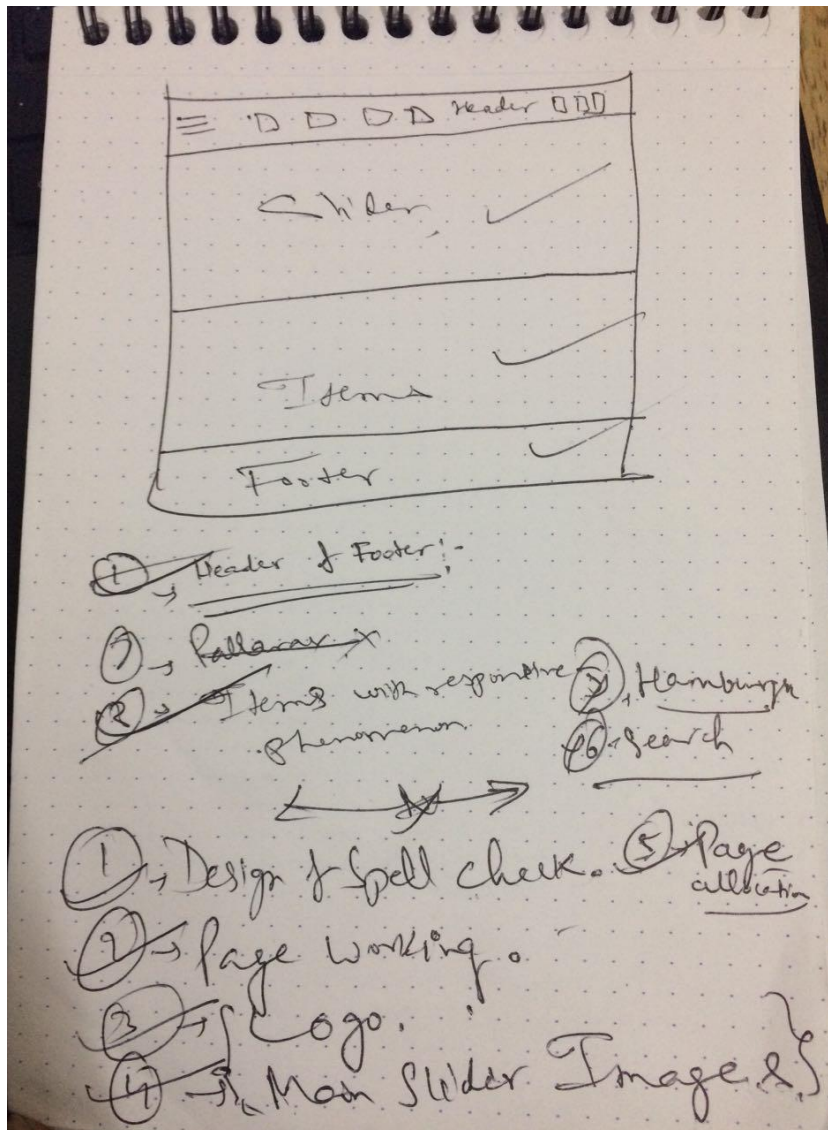 Header
Slider
Items
Footer
① → Header & Footer :-
→ Pallarax
② → Items with responsive
phenomenon
→ Hamburger
⑥ → Search
① → Design & Spell check.
⑤ → Page
allocation
② → Page working.
③ → Logo.
④ → {Main Slider Images}